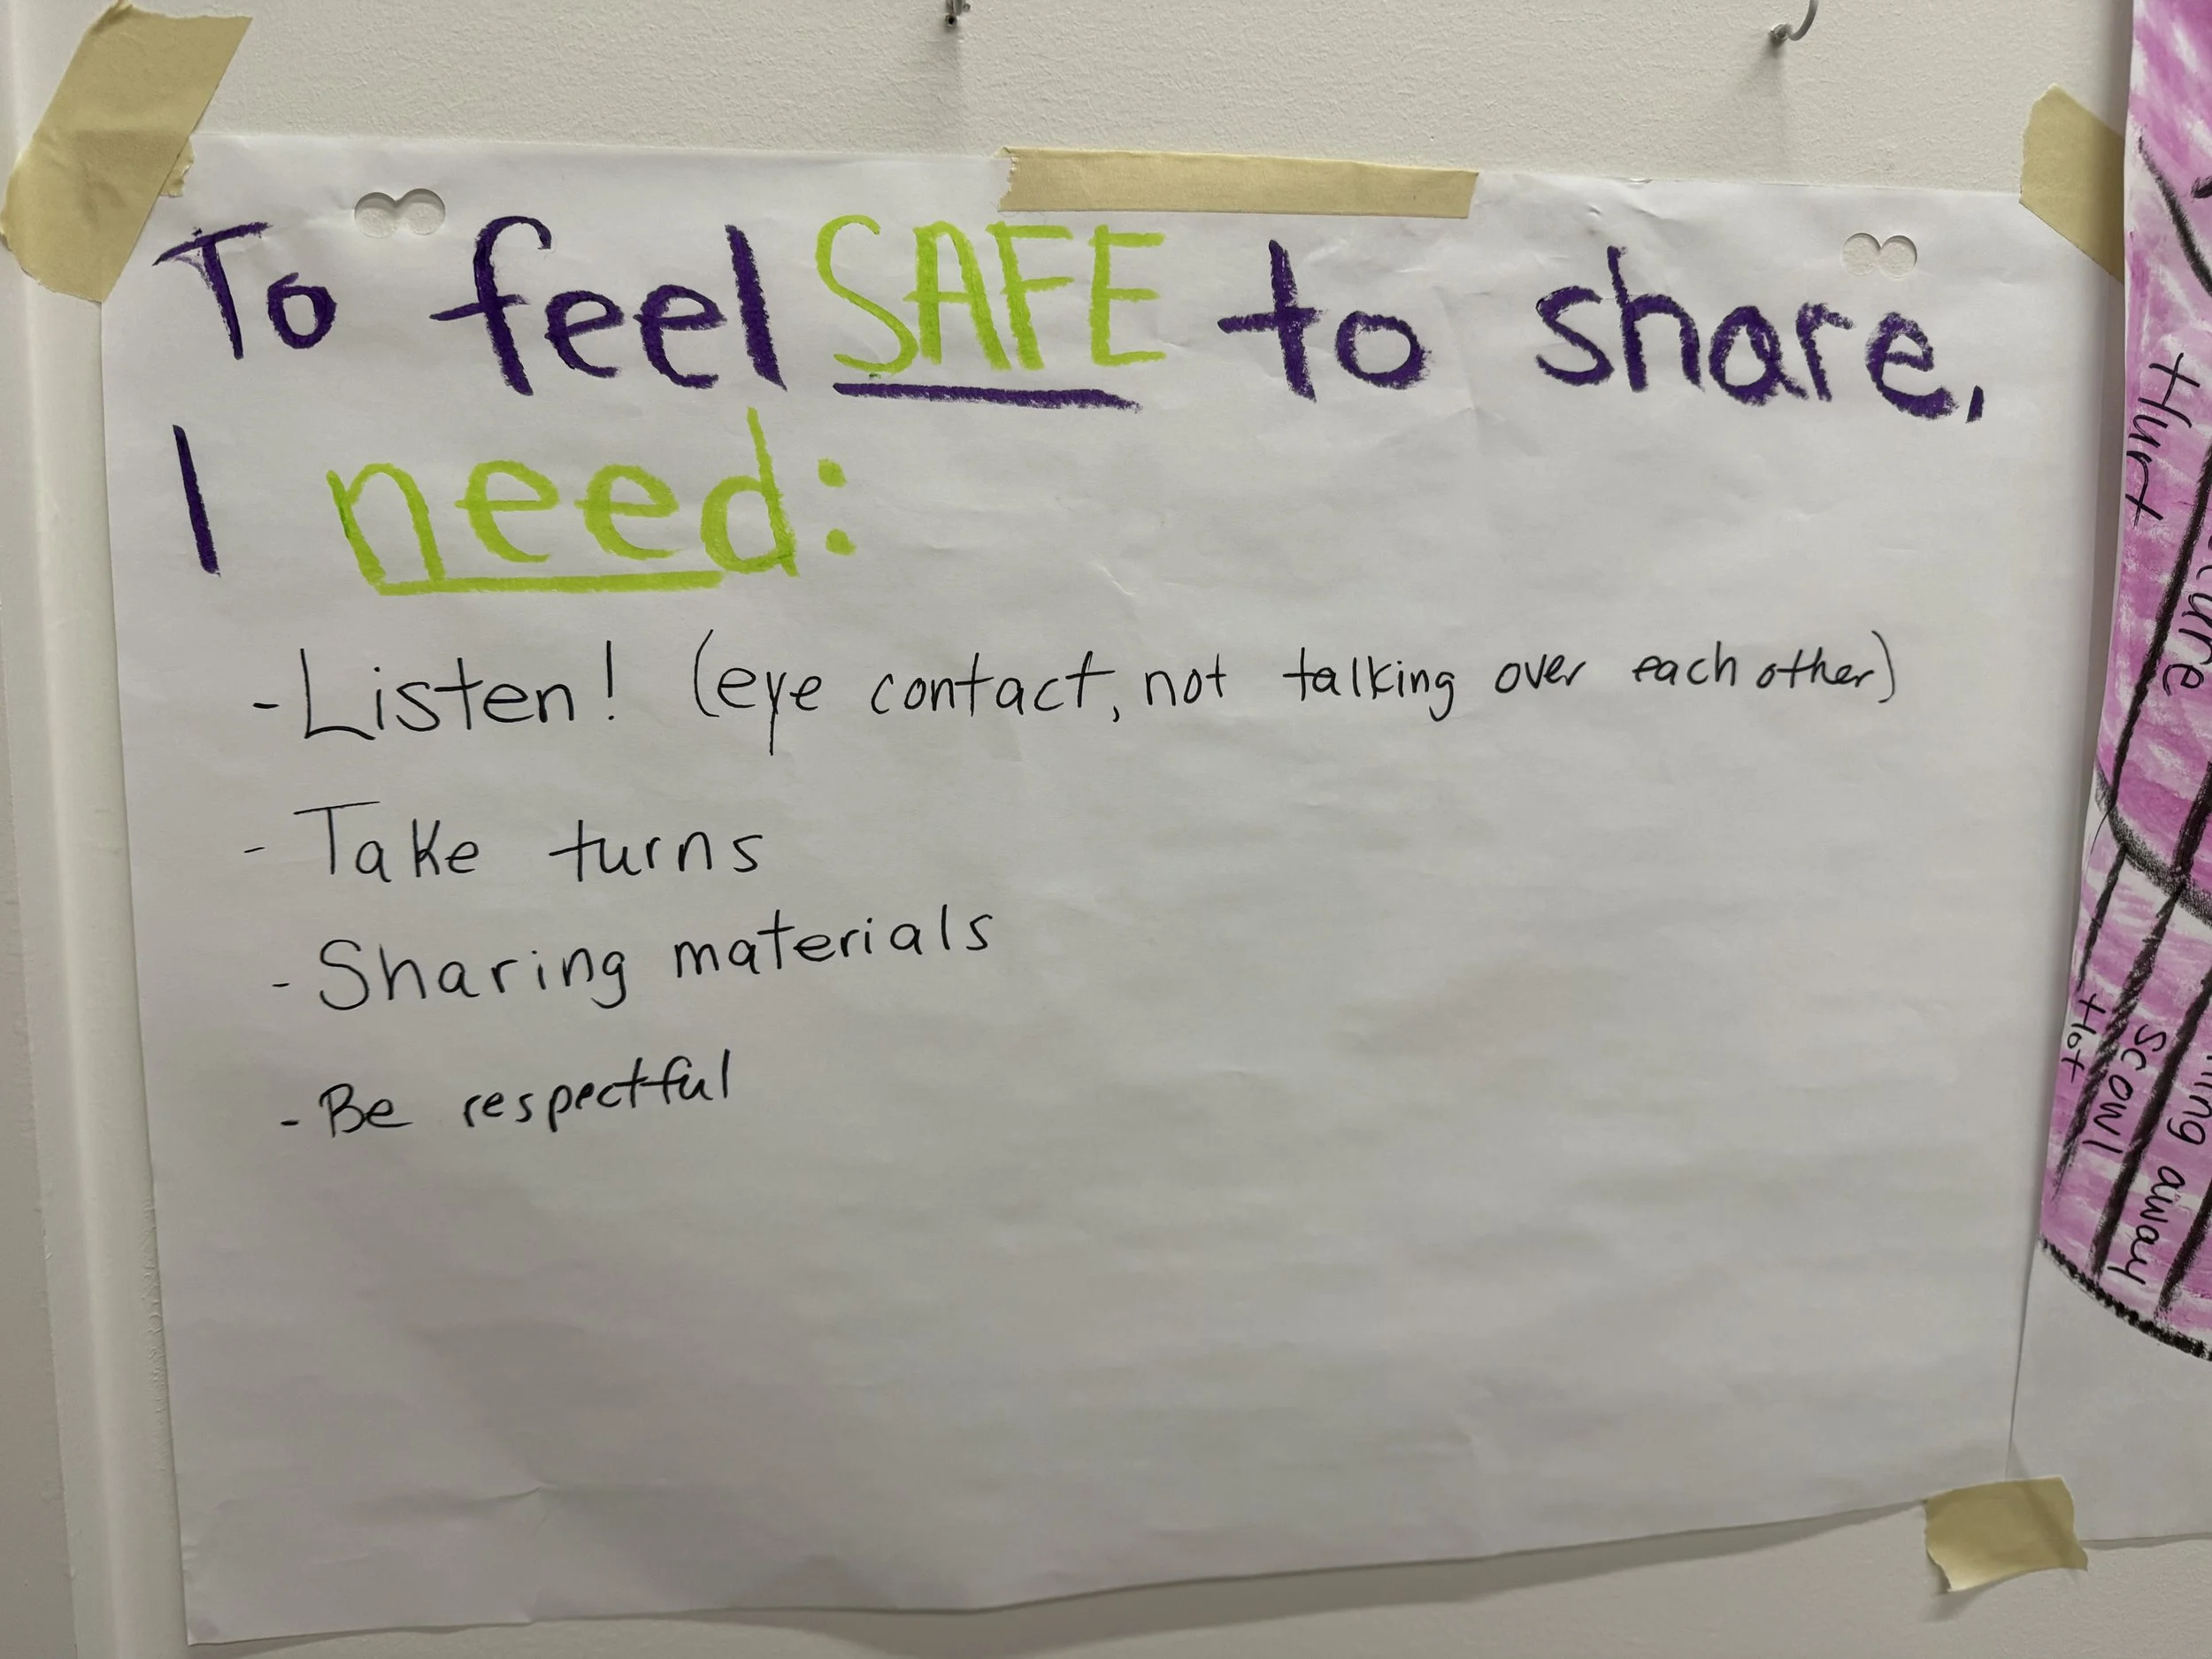 To feel SAFE to share,
I need:
- Listen! (eye contact, not talking over each other)
- Take turns
- Sharing materials
- Be respectful
Hurt
Hot
Scowl
away